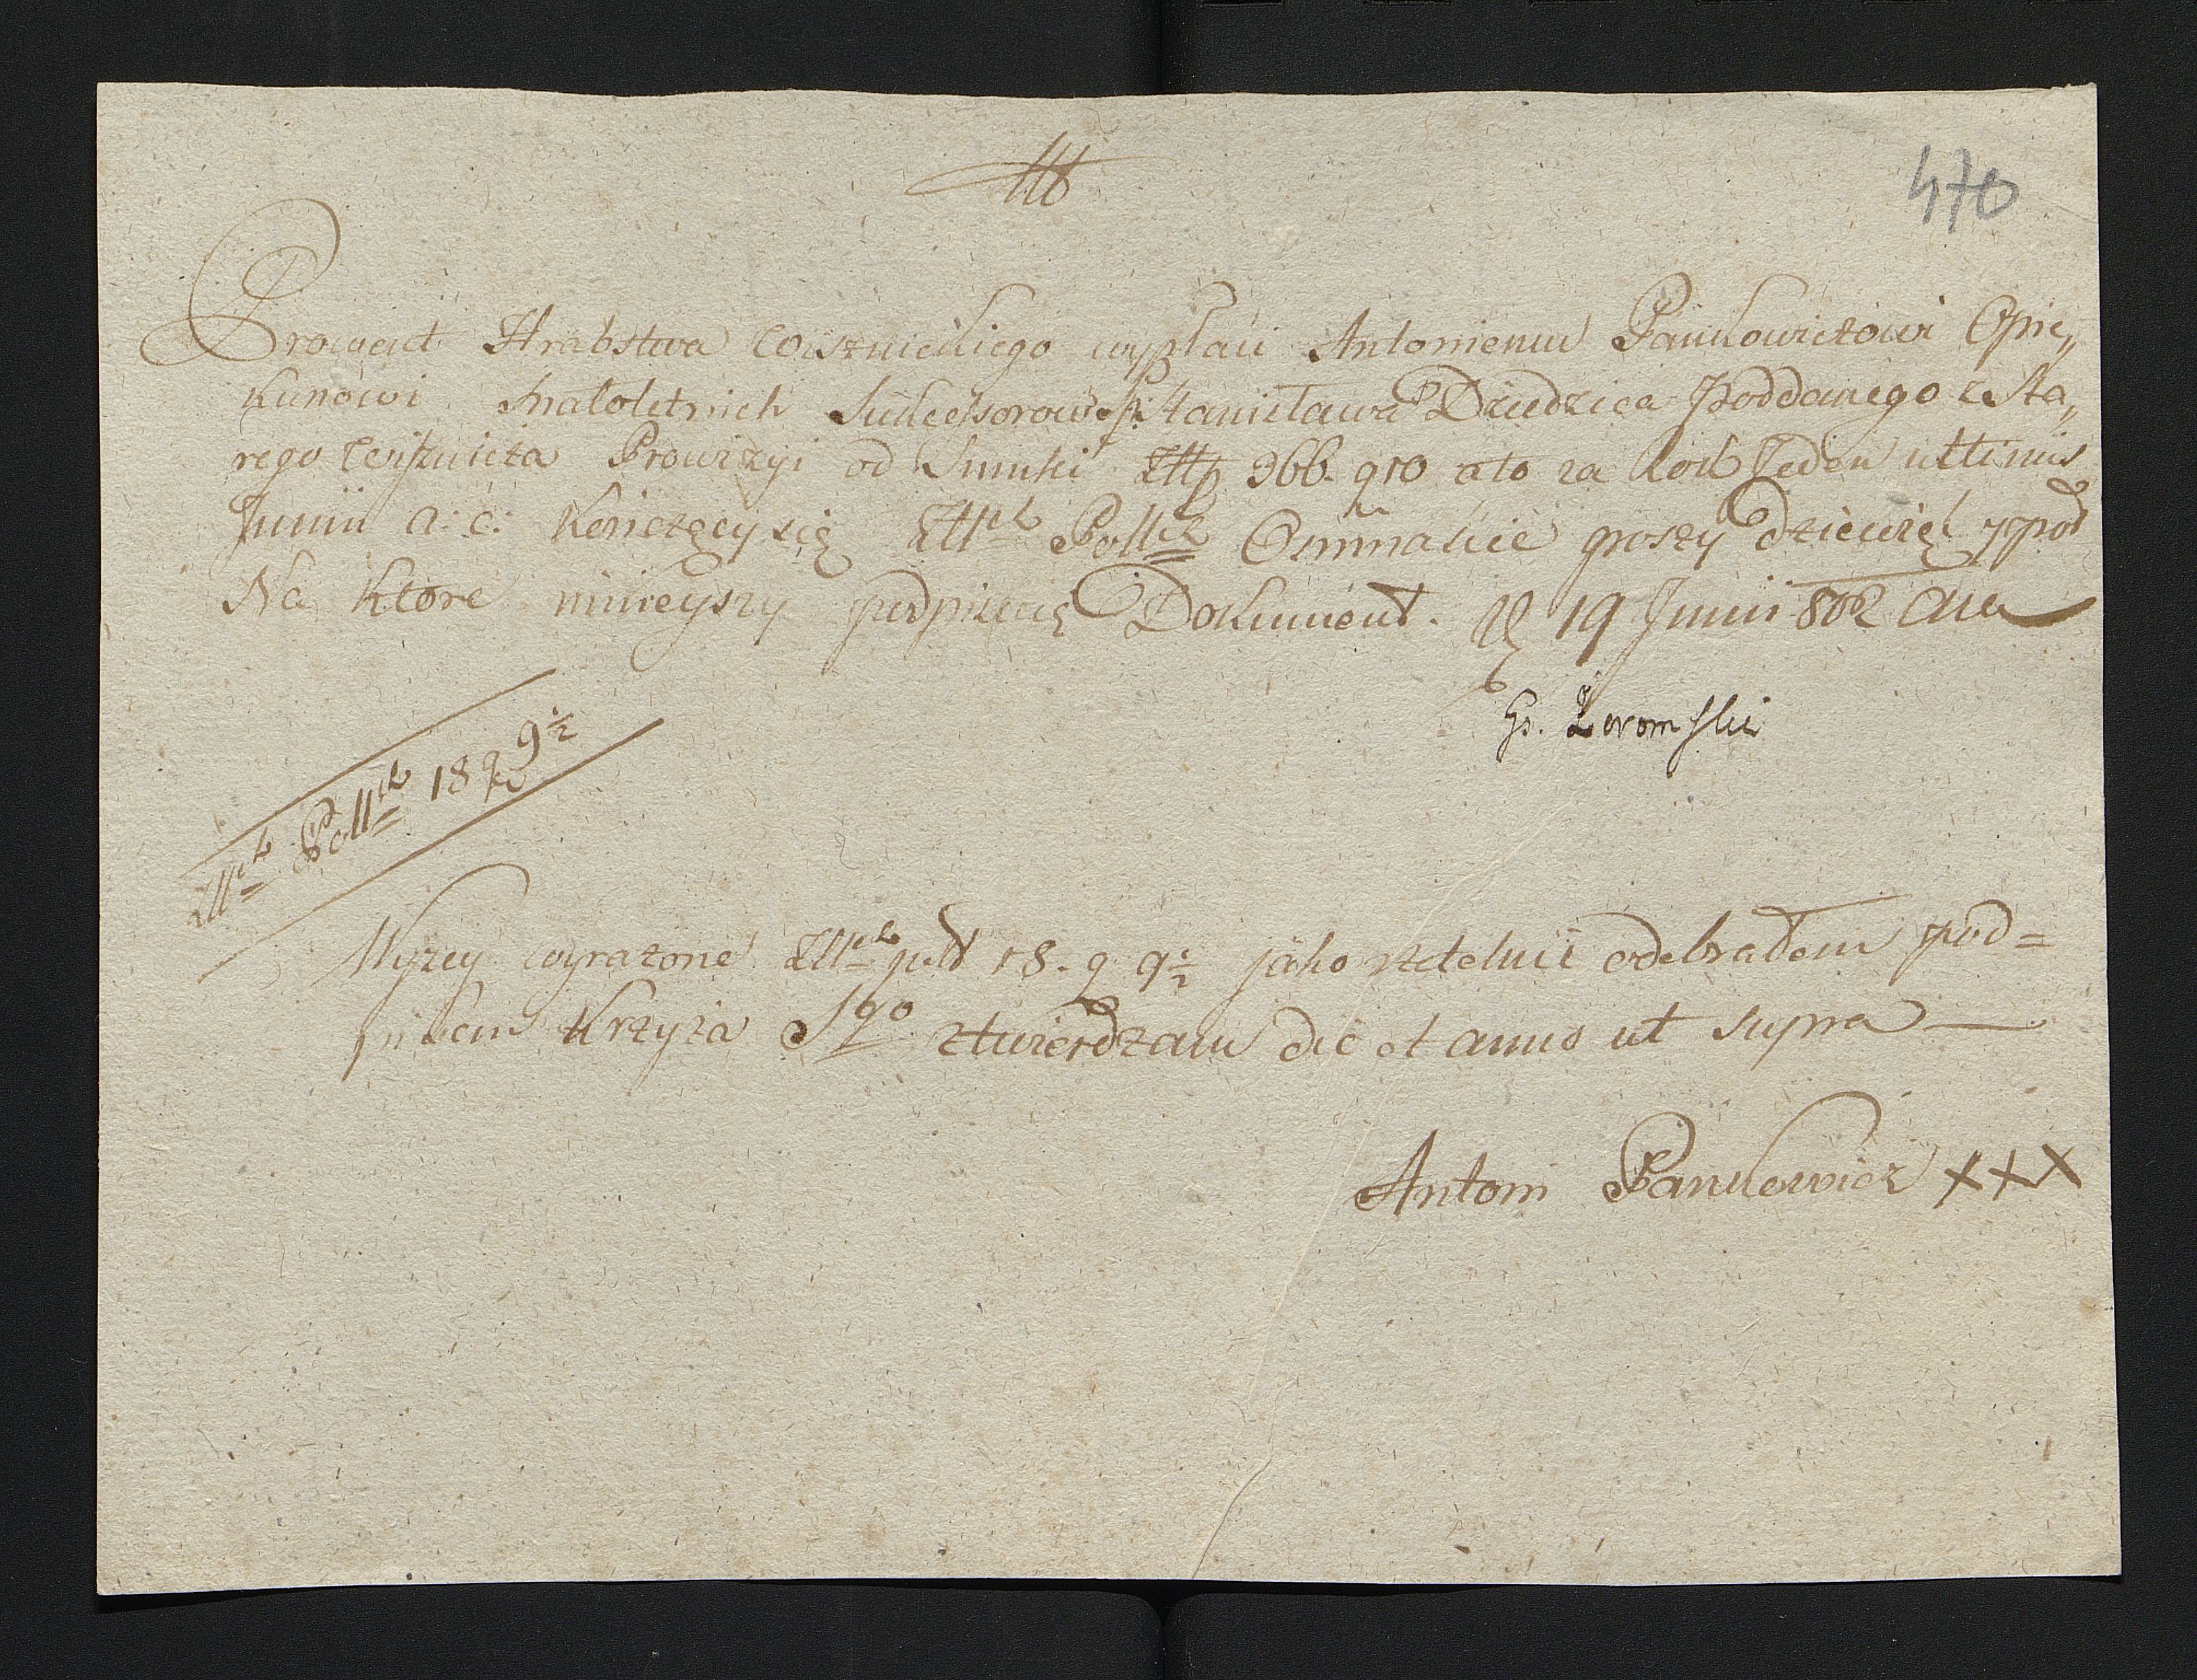 470
Prowent Hrabstwa Wisznickiego wypłaci Antoniemu Pankowiczowi Opie„
kunowi małoletnich Sukcessorow ś.p. Stanisława Dziedzica Poddanego z Sta„
rego Wisznicza Prowizyi od Summy Złłp 366. g 10 a to za Rok Jeden ultimis
Junii a: c: kończący się Złłch Pollch Ośmnaście groszy dziewięć y poł
Na ktore ninieyszy podpisuię Dokument. D 19 Junii 802 Aa
Żeromski
Złłch Pollch 18 g 9½
Wyzey wyrażone Złłch pol 18. g 9½ jako rzetelnie odebrałem pod=
pisem Krzyża Sgo ztwierdzam die et anno ut supra —
Antoni Pankowicz XXX